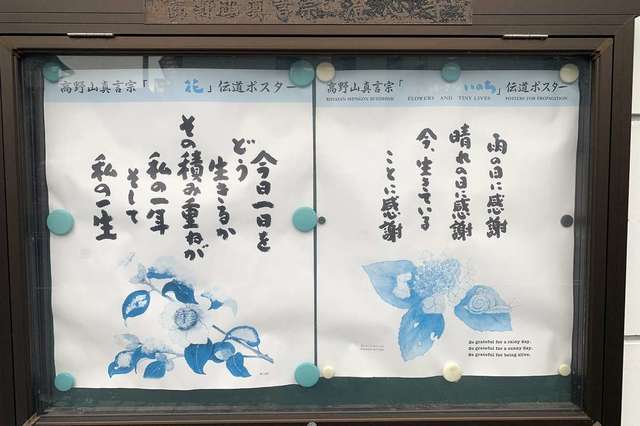 高野山真言宗「 花」伝道ポスター
今日一日を
どう
生きるか
その積み重ねが
私の一年
そして
私の一生
高野山真言宗「 いのち」伝道ポスター
KOYASAN SHINGON BUDDHISM FLOWERS AND TINY LIVES POSTERS FOR PROPAGATION
雨の日に感謝
晴れの日に感謝
今、生きている
ことに感謝
So grateful for a rainy day.
So grateful for a sunny day.
So grateful for being alive.